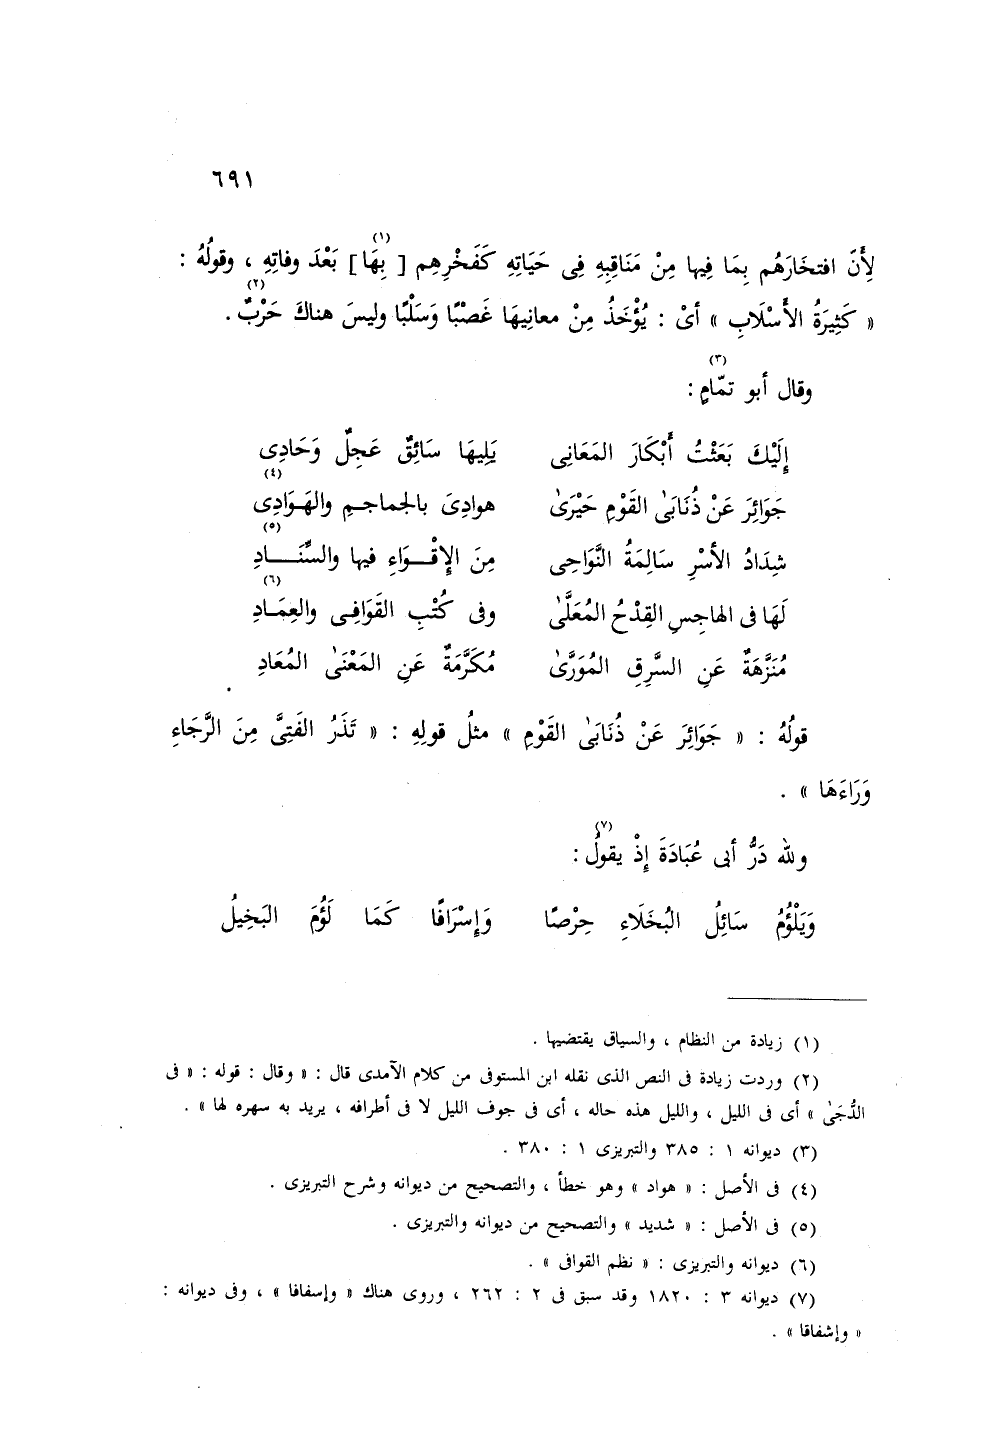 ٦٩١
لِأَنَّ افتخارَهُم بِمَا فِيها مِنْ مَنَاقِبِهِ فِى حَيَاتِهِ كَفَخْرِهِم [ بِهَا ]<sup>(١)</sup> بَعْدَ وفاتِهِ ، وقولُهُ :
« كَثِيرَةُ الأَسْلَابِ » أىْ : يُؤْخَذُ مِنْ معانيهَا غَصْبًا وَسَلْبًا وليسَ هناكَ حَرْبٌ<sup>(٢)</sup> .
وقال أبو تمّامٍ<sup>(٣)</sup> :
إِلَيْكَ بَعَثْتُ أَبْكَارَ المَعَانِى يَلِيهَا سَائِقٌ عَجِلٌ وَحَادِى
جَوَائِرَ عَنْ ذُنَابَىٰ القَوْمِ حَيْرَىٰ هوادِىَ بالجماجمِ والهَوَادِى<sup>(٤)</sup>
شِدَادُ الأسْرِ سَالِمَةُ النَّوَاحِى مِنَ الإِقْوَاءِ فيها والسِّنَادِ<sup>(٥)</sup>
لَهَا فى الهاجِسِ القِدْحُ المُعَلَّىٰ وفى كُتْبِ القَوَافِى والعِمَادِ<sup>(٦)</sup>
مُنَزَّهَةٌ عَنِ السَّرِقِ المُوَرَّىٰ مُكَرَّمَةٌ عَنِ المَعْنَىٰ المُعَادِ
قولُهُ : « جَوَائِرَ عَنْ ذُنَابَىٰ القَوْمِ » مثلُ قولِهِ : « تَذَرُ الفَتِىَّ مِنَ الرَّجَاءِ
وَرَاءَهَا » .
ولله دَرُّ أبى عُبَادَةَ إِذْ يقولُ<sup>(٧)</sup> :
وَيَلْؤُمُ سَائِلُ البُخَلَاءِ حِرْصًا وَإِسْرَافًا كَمَا لَؤُمَ البَخِيلُ
(١) زيادة من النظام ، والسياق يقتضيها .
(٢) وردت زيادة فى النص الذى نقله ابن المستوفى من كلام الآمدى قال : « وقال : قوله : « فى
الدُّجَىٰ » أى فى الليل ، والليل هذه حاله ، أى فى جوف الليل لا فى أطرافه ، يريد به سهره لها » .
(٣) ديوانه ١ : ٣٨٥ والتبريزى ١ : ٣٨٠ .
(٤) فى الأصل : « هواد » وهو خطأ ، والتصحيح من ديوانه وشرح التبريزى .
(٥) فى الأصل : « شديد » والتصحيح من ديوانه والتبريزى .
(٦) ديوانه والتبريزى : « نظم القوافى » .
(٧) ديوانه ٣ : ١٨٢٠ وقد سبق فى ٢ : ٢٦٢ ، وروى هناك « وإسفافا » ، وفى ديوانه :
« وإشفاقا » .